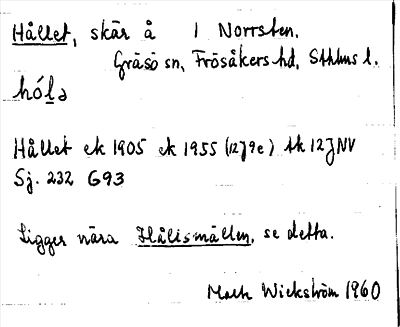 Hållet, skär å 1 Norrsten.
Gräsö sn, Frösåkers hd, Sthlms l.
hó̱lə
Hållet ek 1905 ek 1955 (12J9e) tk 12J NV
Sj. 232 693
Ligger nära Hållsmällen, se detta.
Mats Wickström 1960